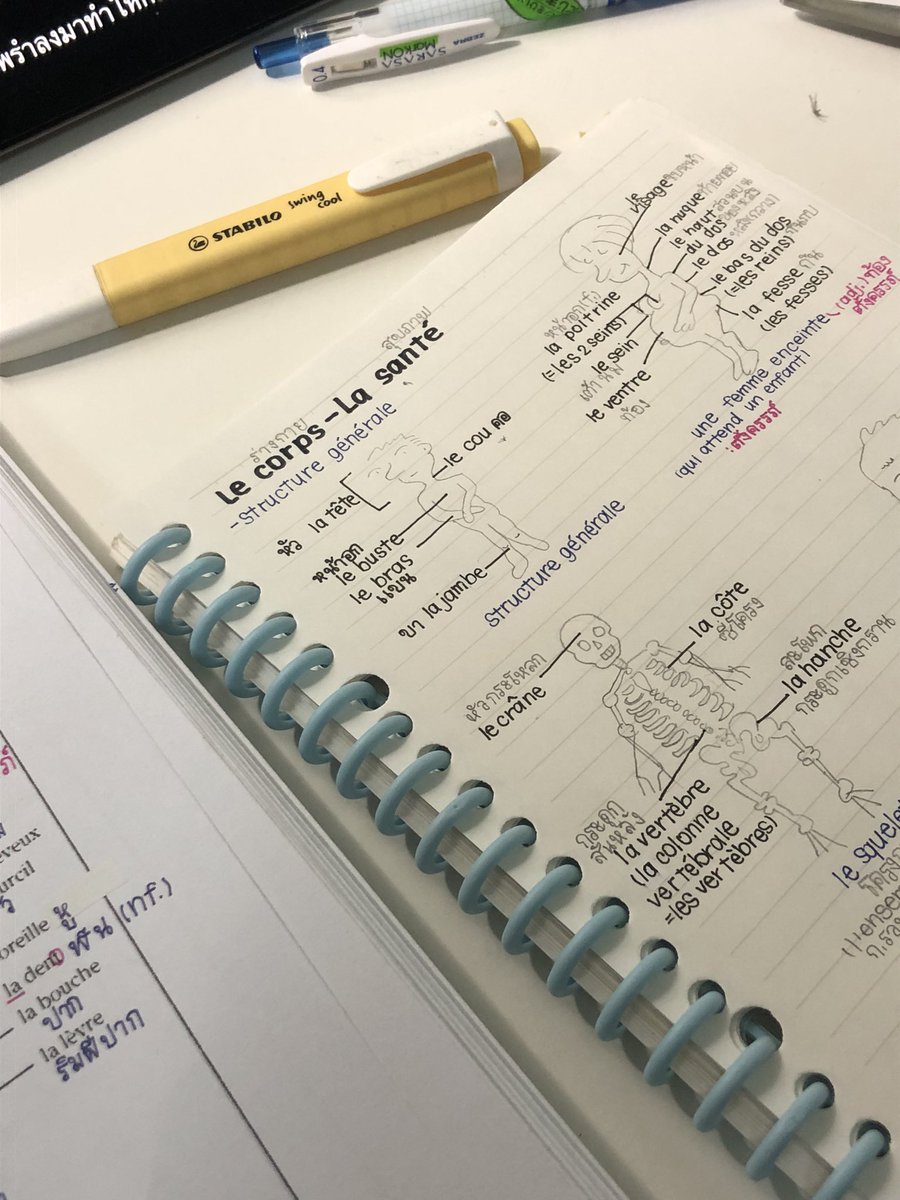 STABILO swing cool
ZEBRA
SARASA
MARKON
0.4
สุขภาพ
ร่างกาย
Le corps - La santé
-structure générale
le cou คอ
หัว la tête
หน้าอก
le buste
le bras
แขน
ขา la jambe
le visage ใบหน้า
la nuque ท้ายทอย
le haut
du dos
le dos
le bas du dos
(=les reins)
la fesse ก้น
(les fesses)
หน้าอก(f)
la poitrine
(=les 2 seins)
le sein
เต้านม
le ventre
ท้อง
une femme enceinte (adj.) ท้อง
ตั้งครรภ์
(qui attend un enfant)
:ตั้งครรภ์
structure générale
la côte
ซี่โครง
หัวกระโหลก
le crâne
สะโพก
la hanche
กระดูกเชิงกราน
กระดูก
สันหลัง
la vertèbre
(la colonne
vertébrale
=les vertèbres)
oreille หู
la dent ฟัน (nf.)
la bouche
ปาก
la lèvre
ริมฝีปาก